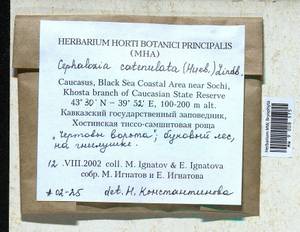 HERBARIUM HORTI BOTANICI PRINCIPALIS
(MHA)
Cephalozia catenulata (Hueb.) Lindb.
Caucasus, Black Sea Coastal Area near Sochi,
Khosta branch of Caucasian State Reserve
43°30' N – 39° 52' E, 100-200 m alt.
Кавказский государственный заповедник,
Хостинская тиссо-самшитовая роща
"Чертовы ворота"; буковый лес,
на гнилушке.
12 .VIII.2002 coll. M. Ignatov & E. Ignatova
собр. М. Игнатов и Е. Игнатова
#02-25 det. Н. Константинова